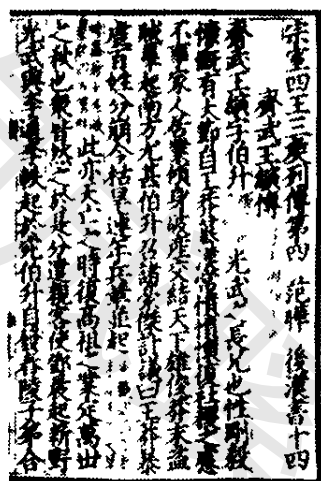 宗室四王三侯列傳第四 范曄 後漢書十四
齊武王縯傳
齊武王縯字伯升 光武之長兄也性剛毅
慷慨有大節自王莽簒漢常憤憤懷復社稷之慮
不事家人居業傾身破産交結天下雄俊莽末盜
賊羣起南方尤甚伯升召諸豪傑計議曰王莽暴
虐百姓分崩今枯旱連年兵革並起
此亦天亡之時復高祖之業定萬世
之秋也衆皆然之於是分遣親客使鄧晨起新野
光武與李通李軼起於宛伯升自發舂陵子弟合